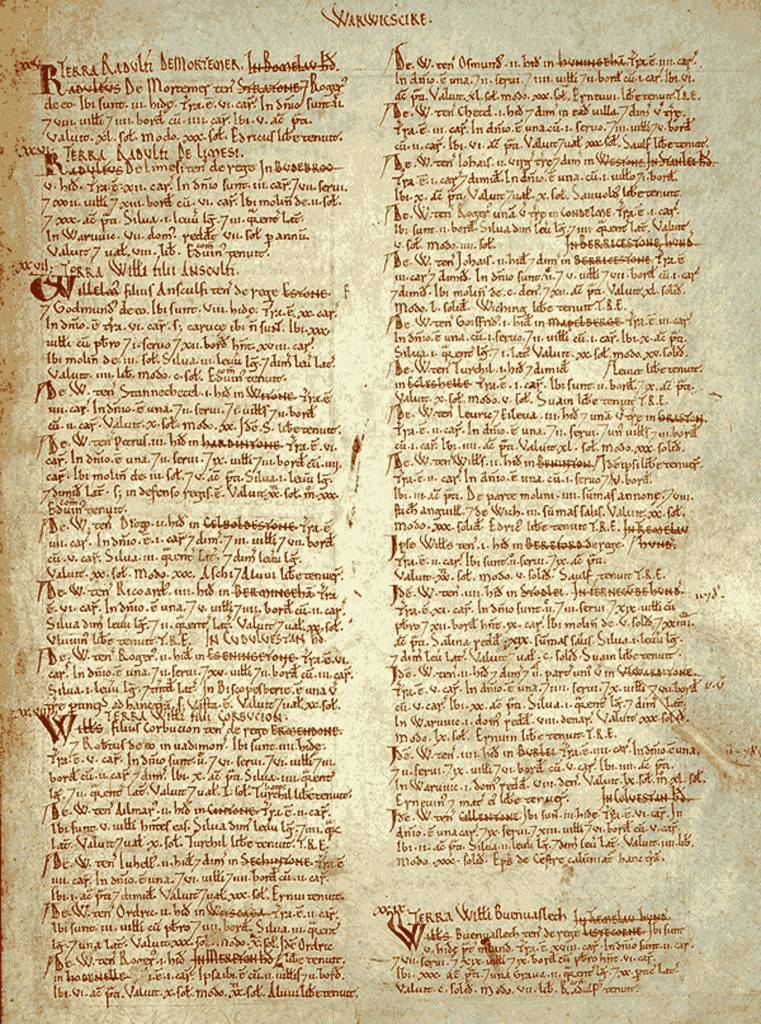 WARWICSCIRE.
XXV. TERRA RADULFI DE MORTEMER. In Bomelau Hd.
RADULFUS De Mortemer ten STRATONE 7 Roger
de eo. Ibi sunt .ii. hide. Tra.e.vi. car. In dnio sunt .ii.
7 viii. uilli 7 iii bord cu .iiii. car. Ibi .v. ac pti.
Valuit .xl. sol. Modo .xxx. sol. Edricus libe tenuit.
XXVI. TERRA RADULFI DE LIMESI.
RADULFUS De limesi ten de rege In BUDEBROC
v. hid. Tra.e.xii. car. In dnio sunt .iii. car. 7 viii. serui
7 xxxii. uilli 7 xiii. bord cu .vi. car. Ibi molin de .ii. sol.
7 xxx. ac pti. Silua .i. leuu lg. 7 iii. quent lat.
In Waruuic .vii. dom. reddt .vii. sol p annu.
Valuit 7 ual .viii. lib. Eduin tenuit.
XXVII. TERRA WILLI FILII ANSCULFI.
Willelm filius Ansculfi ten de rege ESTONE.
7 Godmund de eo. Ibi sunt .viii. hide. Tra.e.xx. car.
In dnio.e.tra .vi. car. s; caruce ibi n sunt. Ibi .xxx.
uilli cu pbro 7 i. seruo 7 xii. bord hnt .xviii. car.
Ibi molin de .iii. sol. Silua .iii. leuu lg. 7 dim leuu lat.
Valuit .iiii. lib. modo .c. sol. Eduin tenuit.
De .W. ten Stannechetel .i. hid in WITONE. Tra.e.
iiii. car. In dnio.e. una. 7 ii. serui. 7 i. uills 7 ii. bord
cu .ii. car. Valuit .x. sol. modo .xx. Ide .S. libe tenuit.
De .W. ten Petrus .iii. hid in HARDINTONE. Tra.e.vi.
car. In dnio.e. una. 7 ii. serui. 7 ix. uilli 7 iii. bord cu .iiii.
car. Ibi molin de .iii. sol. 7 v. ac pti. Silua .i. leuu lg.
7 dimid lat. s; in defenso regis.e. Valuit .xx. sol. m .xxx.
Eduin tenuit.
De .W. ten Drogo .ii. hid in CELBOLDESTONE. Tra.e.
iiii. car. In dnio.e.i. car 7 dim. 7 iii. uilli 7 vii. bord
cu .v. car. Silua .iii. quent lat. 7 dim leuu lg.
Valuit .xx. sol. Modo .xxx. Aschi 7 Aluui libe tenuer.
De .W. ten Ricoard .iiii. hid in BERMINGEHA. Tra
e.vi. car. In dnio.e. una. 7 v. uilli 7 iiii. bord cu .ii. car.
Silua dim leuu lg. 7 ii. quent lat. Valuit 7 ual .xx. sol.
Uluuin libe tenuit T.R.E. IN CUDULVESTAN HD
De .W. ten Roger .ii. hid in ESENINGETONE. Tra.e.vi.
car. In dnio.e. una. 7 v. uilli 7 iiii. bord cu .iii. car.
Silua .i. leuu lg. 7 tntd lat. In Bischopesberie.e. una v
tre ptinens ad hanc tra. s; Vasta.e. Valuit 7 ual .xx. sol.
XXVIII. TERRA WILLI FILII CORBUCION.
Wills filius Corbucion ten de rege ERMENDONE.
7 Robtus de eo in uadimon. Ibi sunt .iii. hide.
Tra.e.v. car. In dnio sunt .ii. 7 vi. serui. 7 vi. uilli 7 vi.
bord cu .ii. car 7 dim. Ibi .x. ac pti. Silua .iii. quent
lg. 7 ii. quent lat. Valuit 7 ual .l. sol. Turchil libe tenuit.
De .W. ten Ailmar .ii. hid in CINTONE. Tra.e.ii. car.
Ibi sunt .v. uilli hntes eas. Silua dim leuu lg. 7 iii. qrent
lat. Valuit 7 ual .x. sol. Turchil libe tenuit. T.R.E.
De .W. ten Luhell .ii. hid 7 dim in SECHINTONE. Tra.e
iiii. car. In dnio.e. una. 7 vi. uilli 7 vi. bord cu .ii. car.
Ibi .i. ac pti 7 dimid. Valuit 7 ual .xxx. sol. Ernui tenuit.
De .W. ten Ordric .ii. hid in Tra.e.ii. car.
Ibi sunt .iii. uilli cu pbro 7 vii. bord. Silua .iii. quent
lg. 7 una lat. Valuit .xxx. sol. modo .x. sol. Ide Ordric
De .W. ten Roger .i. hid IN MERETON HD. libe tenuit.
in HODENELLE .e.i. car. Ipsa ibi.e. cu .ii. uillis 7 ii. bord.
Ibi .vi. ac pti. Valuit .x. sol. modo .xx. sol. Aluui libe tenuit.
De .W. ten Osmund .ii. hid in HUNNINGEHA. Tra.e.iiii. car.
In dnio.e. una. 7 ii. serui. 7 iiii. uilli 7 ii. bord cu .i. car. Ibi .vi.
ac pti. Valuit .xl. sol. modo .xxx. sol. Ernuui libe tenuit. T.R.E.
De .W. ten Chetel .i. hid 7 dim in ead uilla 7 dim v tre.
Tra.e.iii. car. In dnio.e. una cu .i. seruo. 7 iii. uilli 7 v. bord
cu .ii. car. Ibi .vi. ac pti. Valuit 7 ual .xxx. sol. Saulf libe tenuit.
De .W. ten Johais .ii. virg tre 7 dim in WESTONE. IN STANLEI HD.
Tra.e.i. car 7 dimid. In dnio.e. una. cu .i. uillo 7 i. bord.
Ibi .x. ac pti. Valuit 7 ual .x. sol. Sauuold libe tenuit.
De .W. ten Roger una v tre in CONDELME. Tra.e.i. car.
Ibi sunt .ii. bord. Silua dim leuu lg. 7 iiii. quent lat. Valuit
v. sol. modo .iii. sol. IN BERRICESTONE HUND.
De .W. ten Johais .ii. hid 7 dim in BERRICESTONE. Tra.e.iii.
car 7 dimid. In dnio sunt .ii. 7 v. uilli 7 vii. bord cu .i. car
7 dimid. Ibi molin de .c. den. 7 xii. ac pti. Valuit .xl. solid.
Modo .l. solid. Wiching libe tenuit T.R.E.
De .W. ten Goisfrid .i. hid in MAPELBERGE. Tra.e.iii. car
In dnio.e. una. cu .i. seruo. 7 iii. uilli cu .i. car. Ibi .x. ac pti.
Silua .i. quent lg. 7 .i. lat. Valuit .xx. sol. modo .xx. solid.
De .W. ten Turchil .i. hid 7 dimid Leuric libe tenuit.
in ECLESHELLE. Tra.e.i. car. Ibi sunt .ii. bord. 7 x. ac pti.
Valuit .x. sol. modo .v. sol. Suain libe tenuit T.R.E.
De .W. ten Leuric 7 Eileua .iii. hid 7 una v tre in GRASTON.
Tra.e.v. car. In dnio.e. una. 7 ii. serui. 7 vii uilli 7 iii. bord
cu .i. car. Ibi .iiii. ac pti. Valuit .xl. sol. modo .xxx. solid.
De .W. ten Wills .ii. hid in BENINTON. Ide ipsi libe tenuer.
Tra.e.ii. car. In dnio.e. una. cu .ii. seruis 7 v. bord.
Ibi .iii. ac pti. De parte molini .iiii. sumas annone. 7 viii.
stich anguill. 7 de Wich .iii. sumas salis. Valuit .xx. sol.
modo .xxx. solid. Edric libe tenuit T.R.E. IN REMELAU
Ipse Wills ten .i. hid in BEREFORD de rege. HUND.
Tra.e.ii. car. Ibi sunt .ii. serui. 7 ix. ac pti.
Valuit .xx. sol. modo .v. solid. Saulf tenuit T.R.E.
Ide .W. ten .iiii. hid in STODLEI. IN FERNECUBE HUND.
Tra.e.xi. car. In dnio sunt .ii. 7 iii. serui. 7 xix. uilli cu
pbro 7 xii. bord hnt .ix. car. Ibi molin de .v. solid. 7 xxiiii.
ac pti. Salina redd .xix. sumas salis. Silua .i. leuu lg.
7 dim leuu lat. Valuit 7 ual .c. solid. Suain libe tenuit.
Ide .W. ten .ii. hid 7 dim in
Tra.e.vi. car. In dnio.e. una. 7 iiii. serui. 7 x. uilli 7 vii bord
cu .v. car. Ibi .iii. ac pti. Silua .i. quent lg. 7 dim lat.
In Waruuic .i. dom redd .viii. denar. Valuit .xx. sol.
modo .lx. sol. Ernuin libe tenuit. T.R.E.
Ide .W. ten .iiii. hid in BURLEI. Tra.e.iiii. car. In dnio.e. una.
7 ii. serui. 7 ix. uilli 7 vi. bord cu .v. car. Ibi .iiii. ac pti.
In Waruuic .i. dom redd .viii. den. Valuit .lx. sol. m .xl. sol.
Erneuin 7 mat ei libe tenuer. IN COLVESTAN HD.
Ide .W. ten CILLENTONE. Ibi sun .iii. hide. Tra.e.vi. car. In
dnio.e. una car. 7 ix. serui. 7 xiii. uilli 7 vi. bord cu .v. car.
Ibi .ii. ac pti. Silua .ii. leuu lg. 7 dim leuu lat. Valuit .iiii. lib.
modo .xxx. solid. Eps de Cestre calumniat hanc tra.
XXIX. TERRA WILLI BUENVASLECH. IN REMELAU HUND.
Wills Buenuasleth ten de rege LISTECORNE. Ibi sunt
v. hide pt inland. Tra.e.xviii. car. In dnio sunt .ii. car.
7 vii. serui. 7 xix. uilli 7 ix. bord cu pbro hnt .vi. car.
Ibi .xxx. ac pti. 7 una Graua .ii. quent lg. 7 xx. ptic lat.
Valuit .c. solid. Modo .vii. lib. Radulf tenuit.